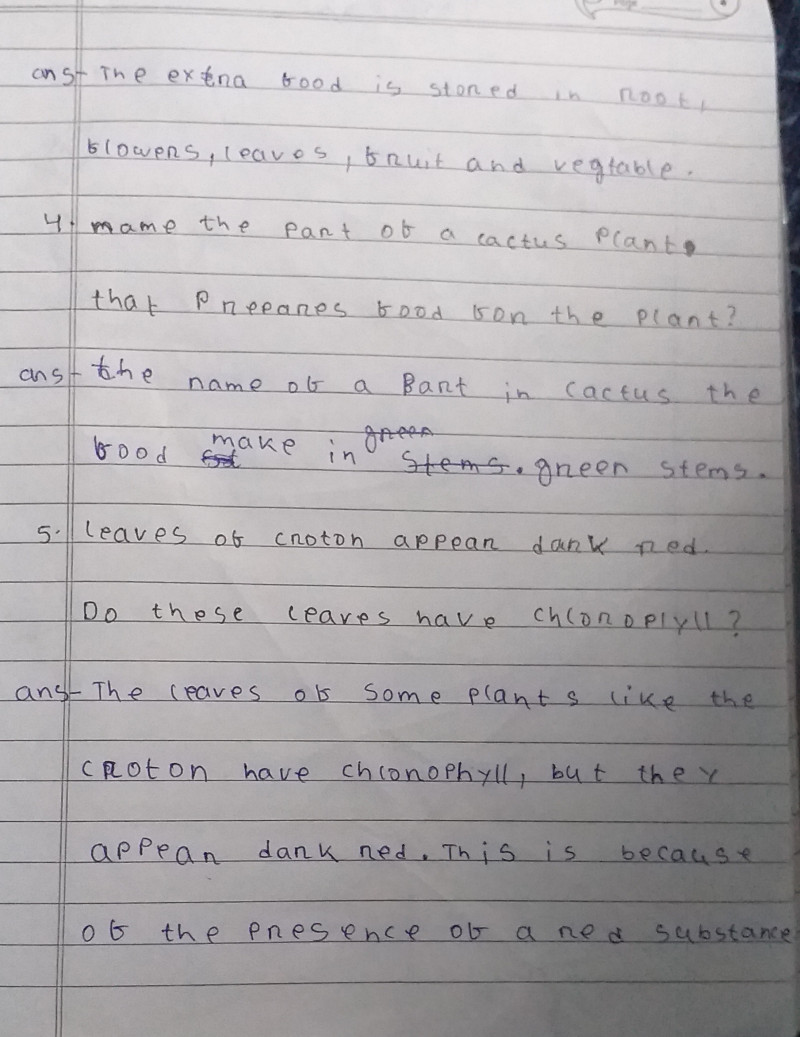 ans- The extra food is stored in root,
flowers, leaves, fruit and vegtable.
4. name the part of a cactus plant
that prepares food for the plant?
ans- the name of a Part in cactus the
food make in green stems. green stems.
5. leaves of croton appear dark red.
Do these leaves have chloroplyll?
ans- The leaves of some plants like the
croton have chlorophyll, but they
appear dark red. This is because
of the presence of a red substance